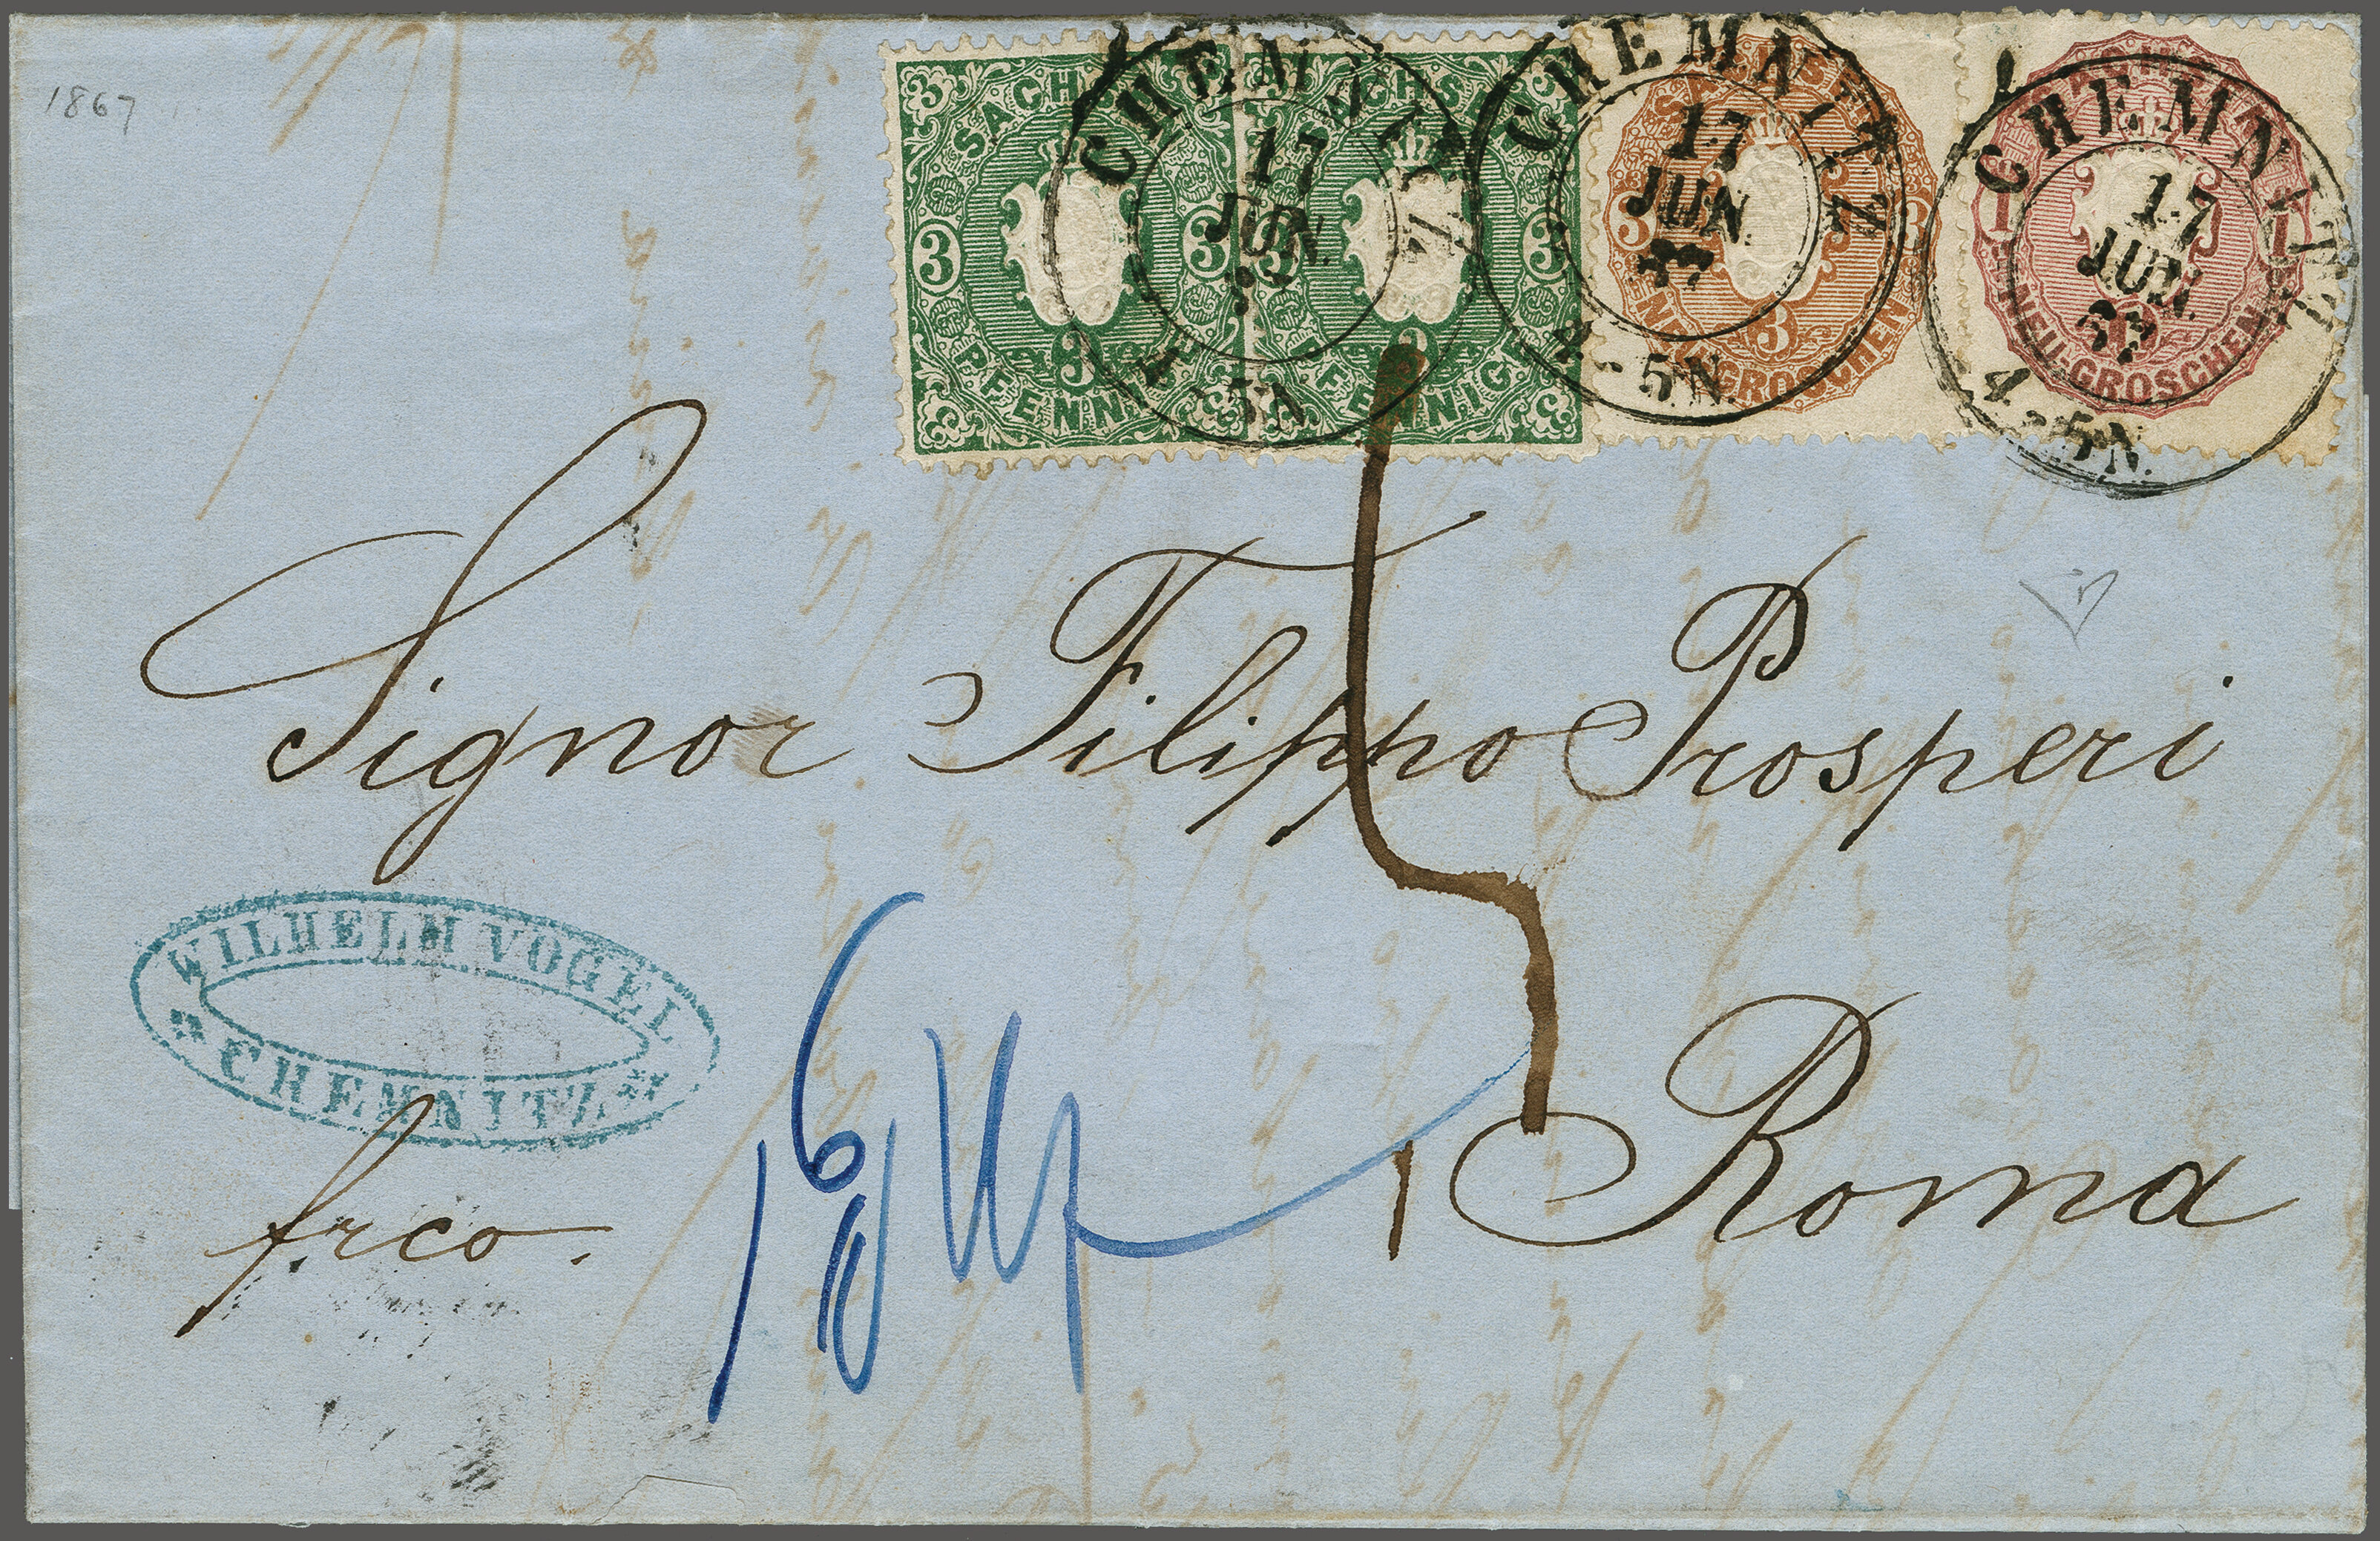 1867
3 SACHSEN
3 3
3
PFENNIG
3 SACHSEN
3 3
3
PFENNIG
3 3
3
NEU-GROSCHEN
1 1
NEU-GROSCHEN
CHEMNITZ
17
JUN.
4-5N.
CHEMNITZ
17
JUN.
67
4-5N.
CHEMNITZ
17
JUN.
67
4-5N.
Signor Filippo Prosperi
Roma
WILHELM VOGEL
CHEMNITZ
frco.